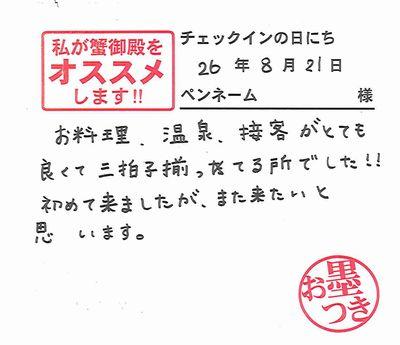 私が蟹御殿を
オススメ
します!!
チェックインの日にち
26年8月21日
ペンネーム 様
お料理、温泉、接客がとても
良くて三拍子揃ってる所でした!!
初めて来ましたが、また来たいと
思います。
お墨つき